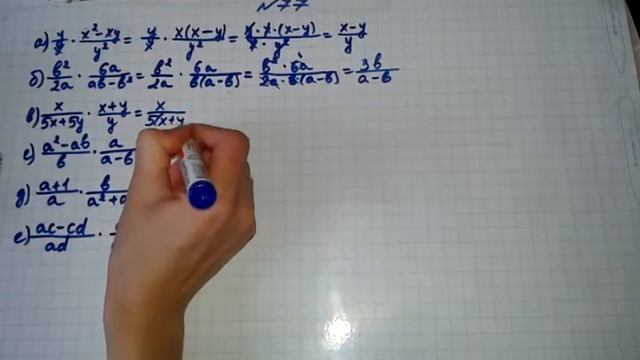 №77
а) y/x · x²-xy/y² = y/x · x(x-y)/y² = y·x·(x-y)/x·y² = x-y/y
б) b²/2a · 6a/ab-b² = b²/2a · 6a/b(a-b) = b²·6a/2a·b(a-b) = 3b/a-b
в) x/5x+5y · x+y/y = x/5(x+y
г) a²-ab/b · a/a-b
д) a+1/a · b/a²+a
е) ac-cd/ad ·